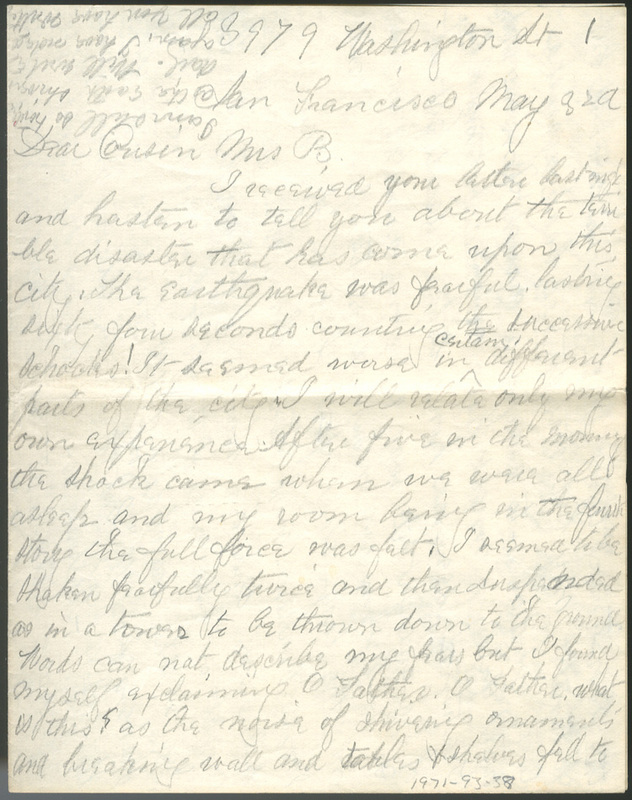 3979 Washington St 1
San Francisco May 3rd
Dear Cousin Mrs B.
I received your letter last night
and hasten to tell you about the terri
ble disaster that has come upon this
city. The earthquake was fearful, lasting
sixty four seconds counting the successive
schocks! It seemed worse in certain different
parts of the city. I will relate only my
own experience. After five in the morning
the shock came when we were all
asleep and my room being in the fourth
story the full force was felt. I seemed to be
shaken fearfully twice and then suspended
as in a tower to be thrown down to the ground
Words can not describe my fears but I found
myself exclaiming O Father, O Father, what
is this? as the noise of shivering ornaments
and breaking wall and tables & shelves fell to
1971-93-38